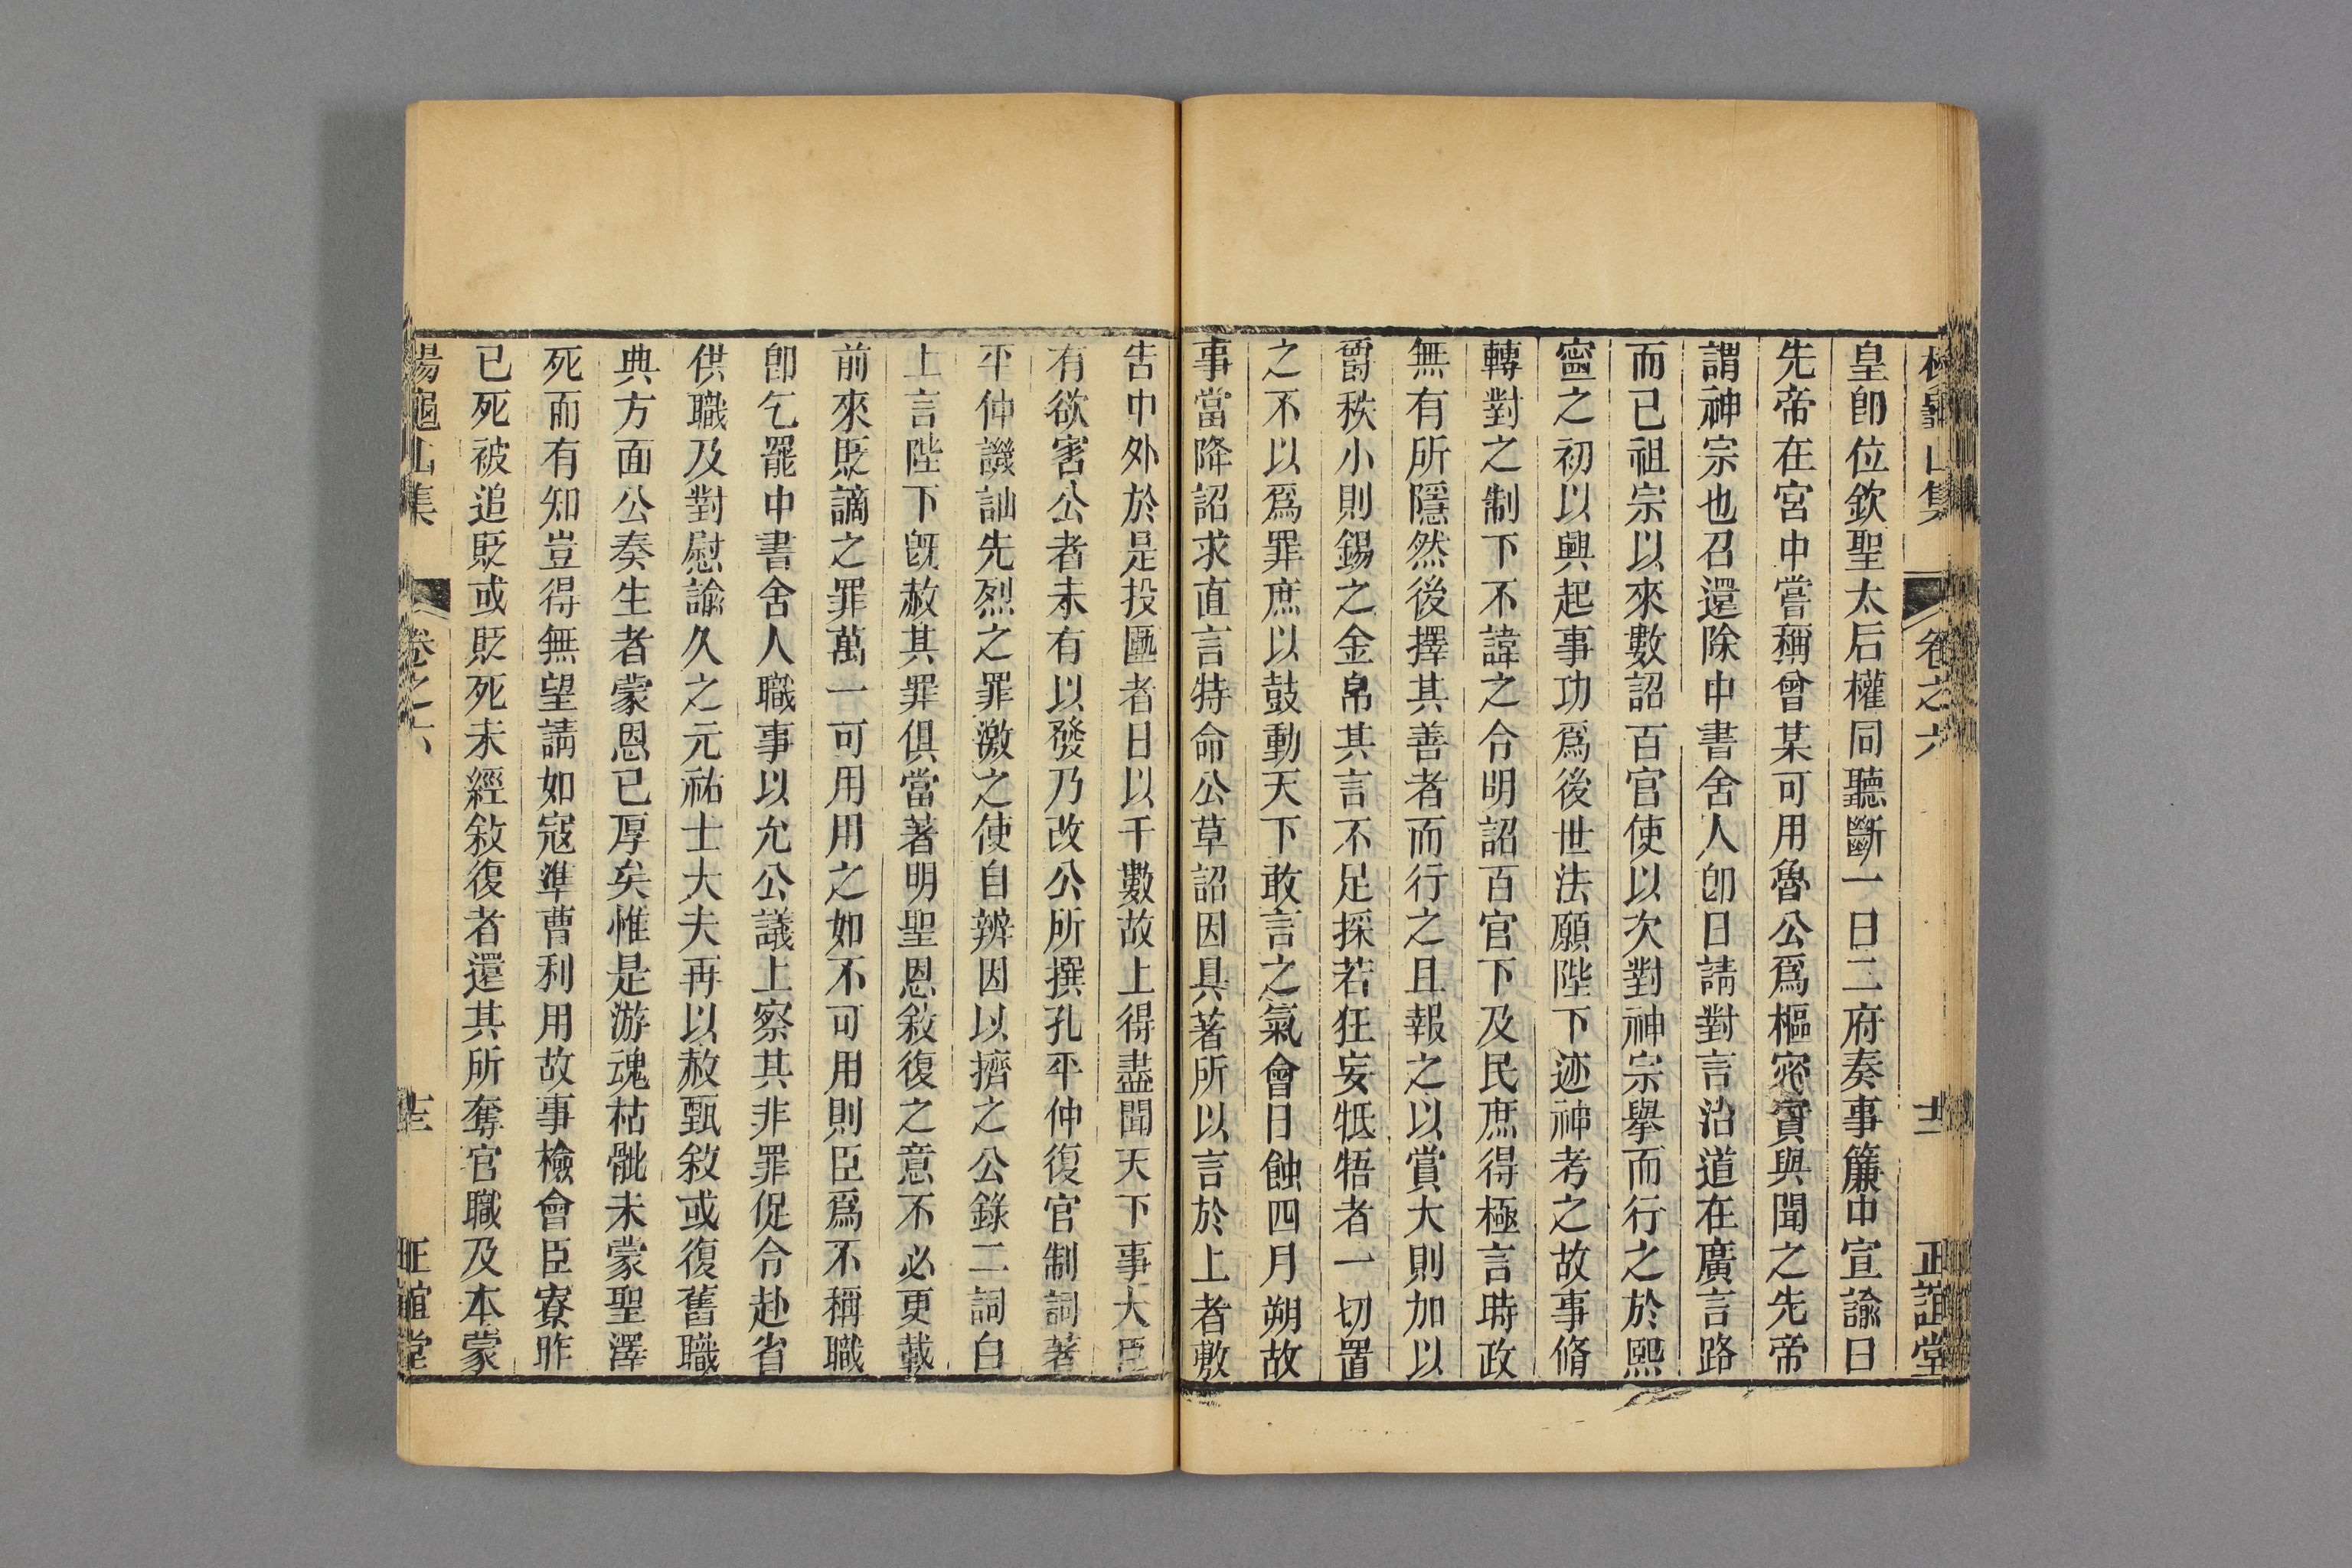 楊龜山集 卷之六 十二 正誼堂
皇卽位欽聖太后權同聽斷一日二府奏事簾中宣諭曰
先帝在宮中嘗稱曾某可用魯公爲樞密實與聞之先帝
謂神宗也召還除中書舍人卽日請對言沿道在廣言路
而已祖宗以來數詔百官使以次對神宗舉而行之於熙
寧之初以興起事功爲後世法願陛下迹神考之故事脩
轉對之制下不諱之令明詔百官下及民庶得極言時政
無有所隱然後擇其善者而行之且報之以賞大則加以
爵秩小則錫之金帛其言不足採若狂妄牴牾者一切置
之不以爲罪庶以鼓動天下敢言之氣會日蝕四月朔故
事當降詔求直言特命公草詔因具著所以言於上者敷
告中外於是投匭者日以千數故上得盡聞天下事大臣
有欲害公者未有以發乃改公所撰孔平仲復官制詞著
平仲譏訕先烈之罪激之使自辨因以擠之公錄二詞白
上言陛下旣赦其罪俱當著明聖恩敘復之意不必更載
前來貶謫之罪萬一可用用之如不可用則臣爲不稱職
卽乞罷中書舍人職事以允公議上察其非罪促令赴省
供職及對慰諭久之元祐士大夫再以赦甄敘或復舊職
典方面公奏生者蒙恩已厚矣惟是游魂枯骴未蒙聖澤
死而有知豈得無望請如寇準曹利用故事檢會臣寮昨
已死被追貶或貶死未經敘復者還其所奪官職及本蒙
楊龜山集 卷之六 十三 正誼堂